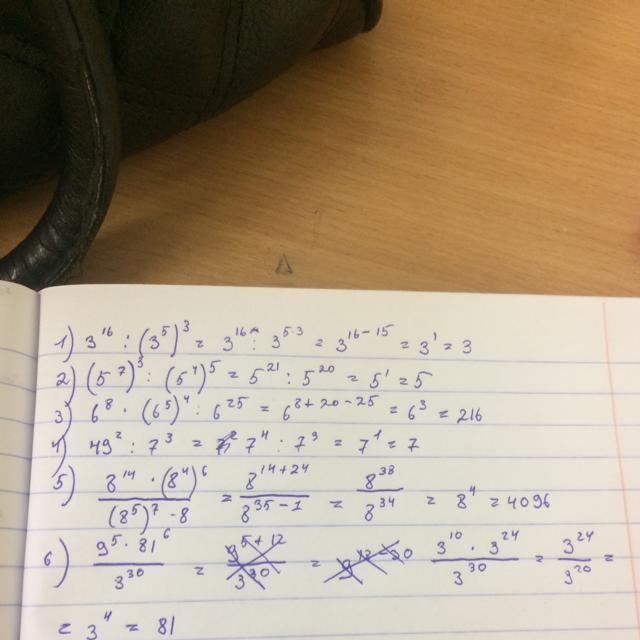 1) 3^16 : (3^5)^3 = 3^16 : 3^5·3 = 3^16-15 = 3^1 = 3
2) (5^7)^3 : (5^4)^5 = 5^21 : 5^20 = 5^1 = 5
3) 6^8 · (6^5)^4 : 6^25 = 6^8+20-25 = 6^3 = 216
4) 49^2 : 7^3 = 7^4 : 7^3 = 7^1 = 7
5) 8^14 · (8^4)^6 / (8^5)^7 - 8 = 8^14+24 / 8^35-1 = 8^38 / 8^34 = 8^4 = 4096
6) 9^5 · 81^6 / 3^30 = 9^5+12 / 3^30 = 3^10 · 3^24 / 3^30 = 3^24 / 3^20 =
= 3^4 = 81